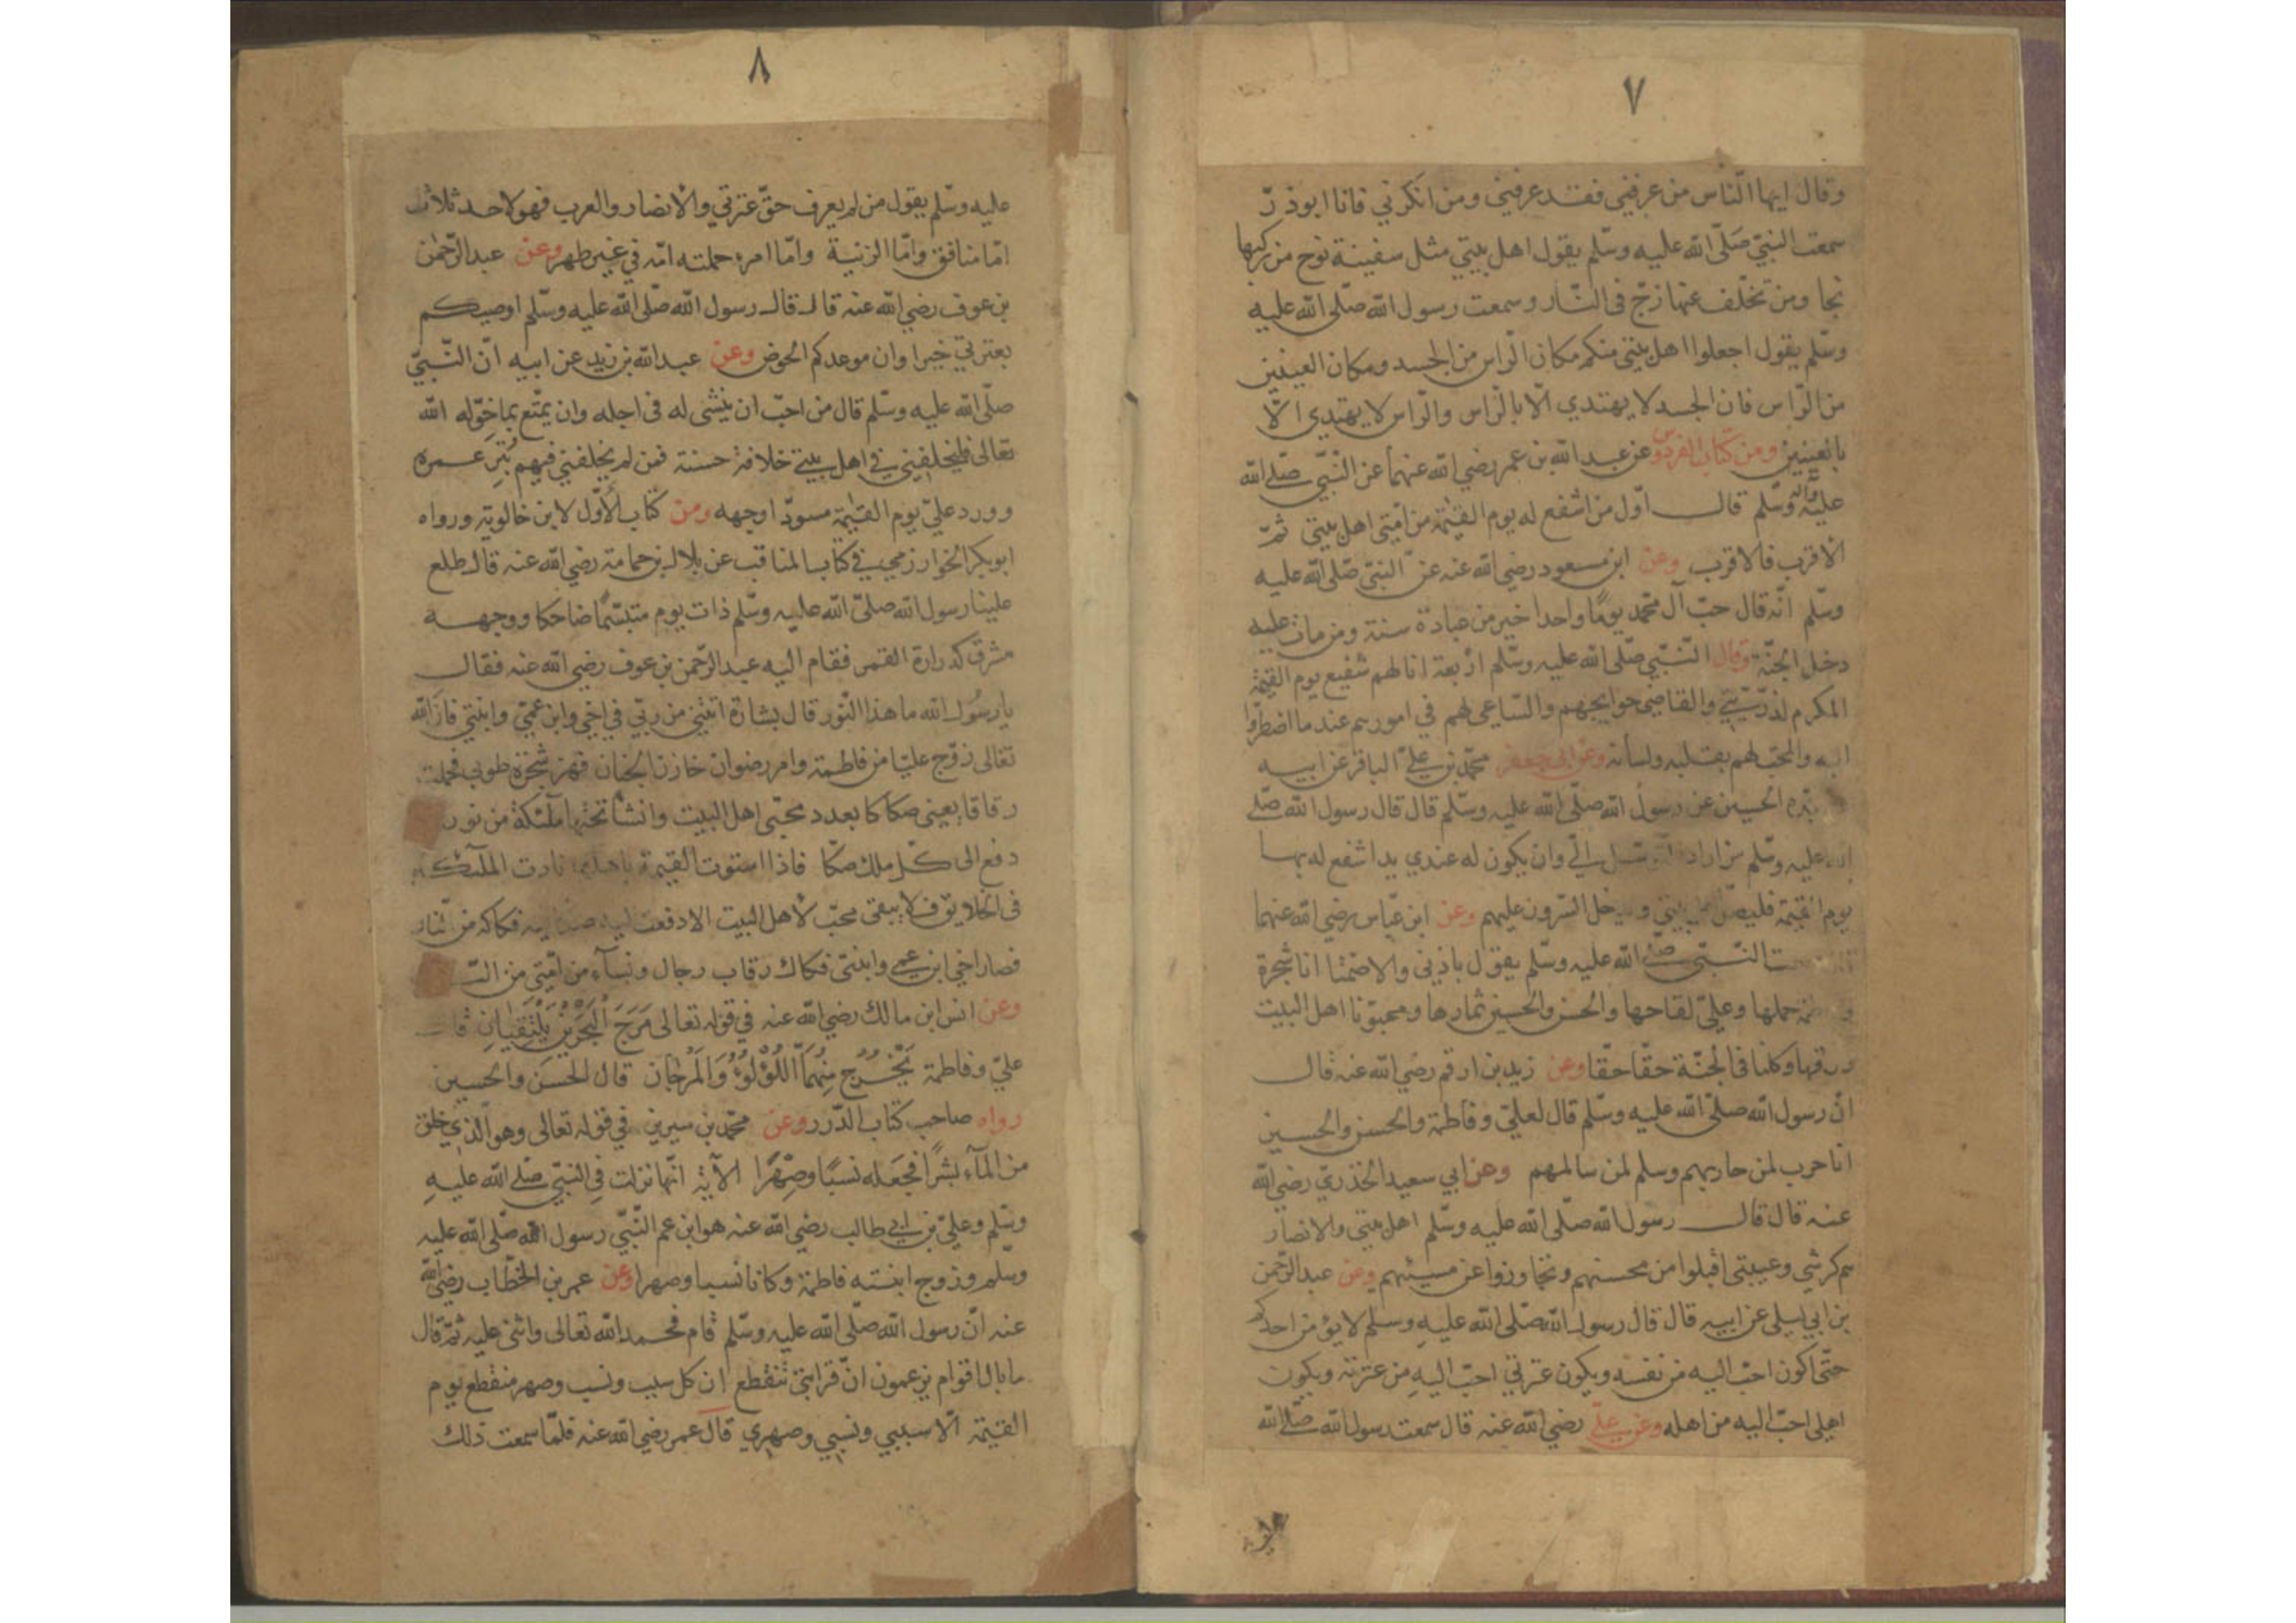 ٧
وقال ايها الناس من عرفني فقد عرفني ومن انكرني فانا ابوذرّ
سمعت النبيّ صَلّى الله عليه وسلّم يقول اهل بيتي مثل سفينة نوح من ركبها
نجا ومن تخلّف عنها زجّ فى النّار وسمعت رسول الله صلّى الله عليه
وسلّم يقول اجعلوا اهل بيتى منكم مكان الراس من الجسد ومكان العينين
من الرّاس فان الجسد لا يهتدي الّا بالرّاس والرّاس لا يهتدي الّا
بالعينين ومن كتاب الفردوس عن عبد الله بن عمر رضي الله عنهما عن النّبيّ صلّى الله
عليه وآله وسلّم قال اوّل من اشفع له يوم القيٰمة من امّتى اهل بيتى ثمّ
الاقرب فالاقرب وعن ابن مسعود رضي الله عنه عن النبيّ صلّى الله عليه
وسلّم انّه قال حبّ آل محمّد يومًا واحدا خير من عبادة سنة ومن مات عليه
دخل الجنّة وقال النّبيّ صلّى الله عليه وسلّم اربعة انا لهم شفيع يوم القيٰمة
المكرم لذرّيّتي والقاضي حوايجهم والسّاعى لهم في امورهم عند ما اضطرّوا
اليه والمحبّ لهم بقلبه ولسانه وعن ابى جعفر محمّد بن عليّ الباقر عن ابيه
الحسين عن رسول الله صلّى الله عليه وسلّم قال قال رسول الله صلّى
الله عليه وسلّم من اراد التوسّل اليّ وان يكون له عندي يدا اشفع له بها
يوم القيٰمة فليصل اهل بيتي ويدخل السّرور عليهم وعن ابن عبّاس رضي الله عنهما
النّبيّ صلّى الله عليه وسلّم يقول باذنى والاصمّتا انا شجرة
وفاطمة حملها وعليّ لقاحها والحسن والحسين ثمارها ومحبّونا اهل البيت
ورقها وكلنا فى الجنّة حقّا حقّا وعن زيد بن ارقم رضي الله عنه قال
انّ رسول الله صلّى الله عليه وسلّم قال لعليّ وفاطمة والحسن والحسين
انا حرب لمن حاربهم وسلم لمن سالمهم وعن ابي سعيد الخذريّ رضي الله
عنه قال قال رسول الله صلّى الله عليه وسلّم اهل بيتي والانصار
هم كرشي وعيبتي اقبلوا من محسنهم وتجاوزوا عن مسيئهم وعن عبد الرّحمن
بن ابي ليلى عن ابيه قال قال رسول الله صلّى الله عليه وسلم لا يؤمن احدكم
حتّى اكون احبّ اليه من نفسه ويكون عترتي احبّ اليه من عترته ويكون
اهلى احبّ اليه من اهله وعن عليّ رضي الله عنه قال سمعت رسول الله صلّى الله
٨
عليه وسلّم يقول من لم يعرف حقّ عترتي والانصار والعرب فهو لاحد ثلاث
امّا منافق وامّا الزنية وامّا امرء حملته امّه في غير طهر وعن عبد الرّحمٰن
بن عوف رضي الله عنه قال قال رسول الله صلّى الله عليه وسلّم اوصيكم
بعترتي خيرا وان موعدكم الحوض وعن عبد الله بن زيد عن ابيه انّ النّبيّ
صلّى الله عليه وسلّم قال من احبّ ان ينشى له فى اجله وان يمتّع بما خوّله الله
تعالى فليخلفني في اهل بيتي خلافة حسنة فمن لم يخلفني فيهم بُتِر عمره
وورد عليّ يوم القيٰمة مسودّا وجهه ومن كتاب الأوّل لابن خالويه ورواه
ابو بكر الخوارزمي في كتاب المناقب عن بلال بن حمامة رضي الله عنه قال طلع
علينا رسول الله صلّى الله عليه وسلّم ذات يوم متبسّمًا ضاحكا ووجهه
مشرق كدارة القمر فقام اليه عبد الرّحمن بن عوف رضي الله عنه فقال
يا رسُول الله ما هذا النّور قال بشارة اتتني من ربّي في اخي وابن عمّي وابنتي فان الله
تعالى زوّج عليّا من فاطمة وامر رضوان خازن الجنان فهز شجرة طوبى فحملت
رقاقا يعنى صكاكا بعدد محبّى اهل البيت وانشأ تحتها ملئكة من نور
دفع الى كلّ ملك صكّا فاذا استوت القيمة باهلها نادت الملآئكة
فى الخلايق فلا يبقى محبّ لأهل البيت الا دفعت اليه صكا فيه فكاكه من النار
فصار اخي ابن عمي وابنتى فكاك رقاب رجال ونسآء من امّتى من النّ
وعن انس ابن مالك رضي الله عنه في قوله تعالى مَرَجَ الْبَحْرَيْنِ يَلْتَقِيَانِ قال
عليّ وفاطمة يَخْرُجُ مِنْهُمَا اللُّؤْلُؤُ وَالْمَرْجَان قال الحَسَن والحسين
رواه صاحب كتاب الدّرر وعن محمّد بن سيرين في قوله تعالى وهو الّذي خلق
من المآء بشرًا فجَعَله نسبًا وصِهْرًا الآية انّها نزلت في النّبيّ صلّى الله عليهِ
وسلّم وعليّ بن ابي طالب رضي الله عنه هو ابن عم النّبيّ رسول الله صلّى الله عليه
وسلّم وزوج ابنته فاطمة وكانا نسبا وصهرا وعن عمر بن الخطّاب رضي الله
عنه انّ رسول الله صلّى الله عليه وسلّم قام فحمد الله تعالى واثنى عليه ثمّ قال
ما بال اقوام يزعمون انّ قرابتى تنقطع ان كل سبب ونسب وصهر منقطع يوم
القيٰمة الّا سببي ونسبي وصهري قال عمر رضي الله عنه فلمّا سمعت ذلك